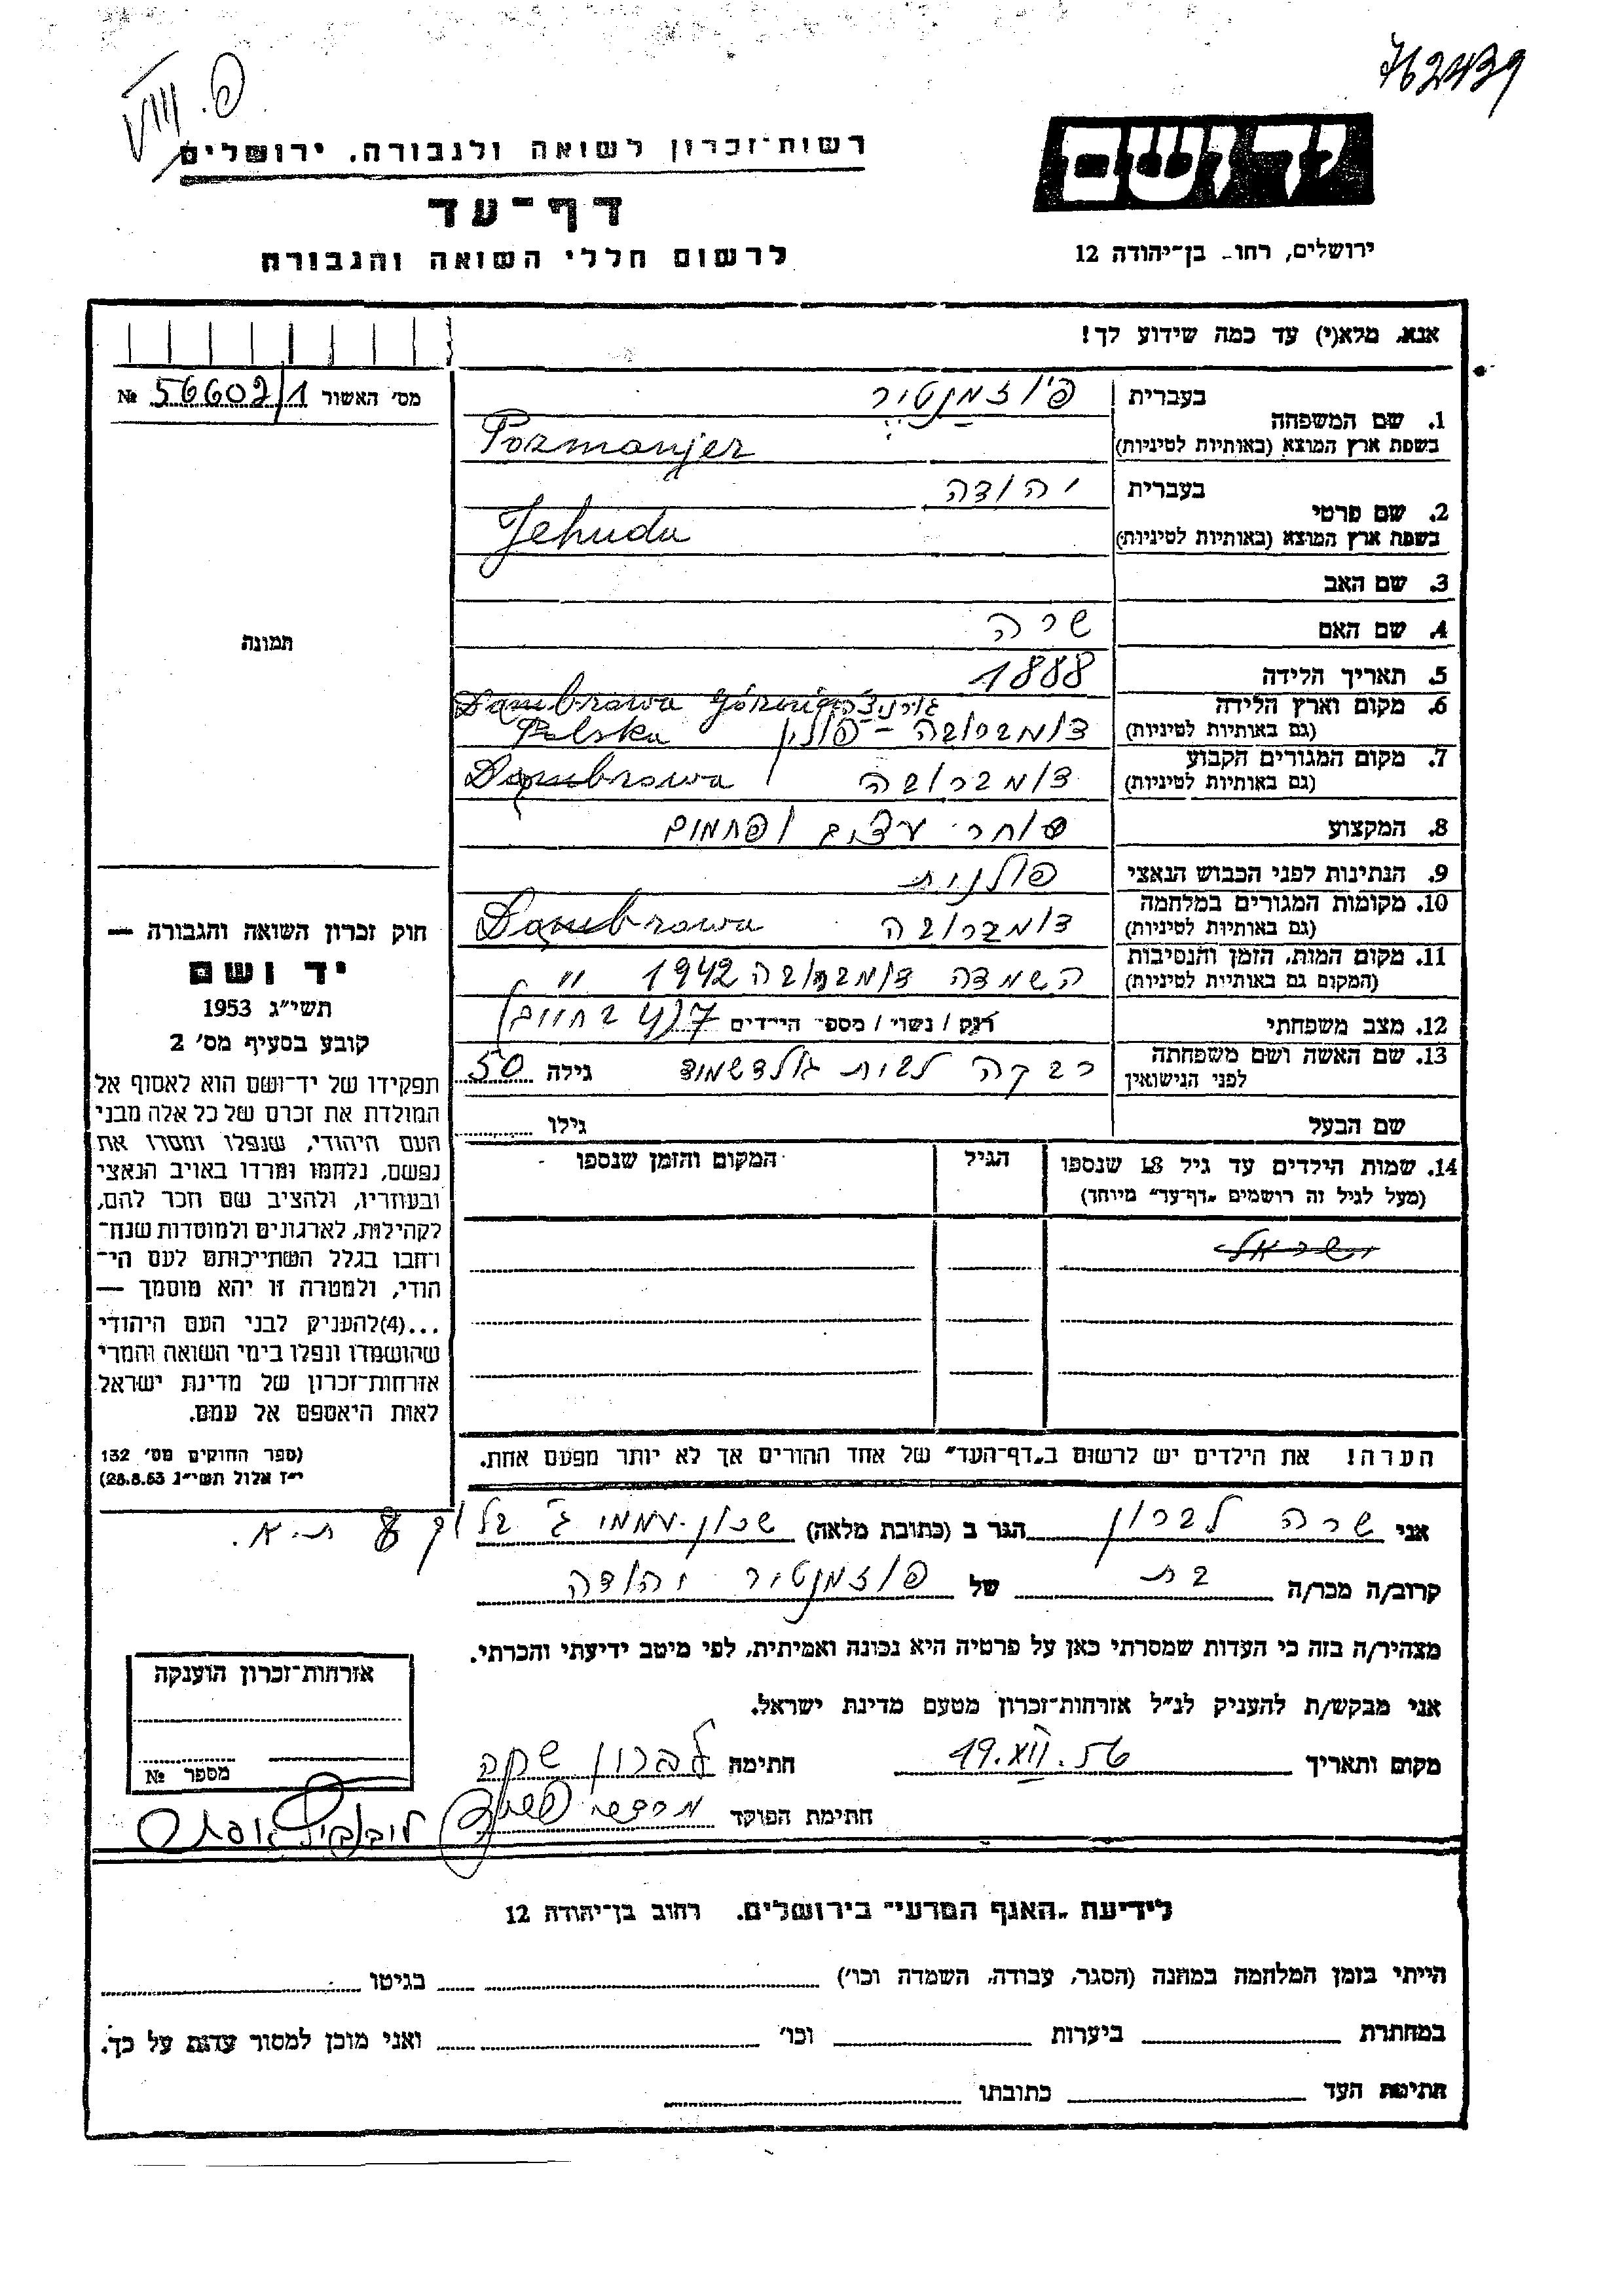 762439
פ. VIII
יד ושם
ירושלים, רחו- בן־יהודה 12
רשות־זכרון לשואה ולגבורה, ירושלים
דף־עד
לרשום חללי השואה והגבורה
אנא, מלא(י) עד כמה שידוע לך!
מס' האשור 56602/1 №
תמונה
1. שם המשפחה
בעברית פוזמנטיר
בשפת ארץ המוצא (באותיות לטיניות) Pozmanjer
2. שם פרטי
בעברית יהודה
בשפת ארץ המוצא (באותיות לטיניות) Jehuda
3. שם האב
4. שם האם שרה
5. תאריך הלידה 1888
6. מקום וארץ הלידה גורניצה Dąmbrowa Górnicza
(גם באותיות לטיניות) דומברובה - פולין Polska
7. מקום המגורים הקבוע
(גם באותיות לטיניות) דומברובה Dąmbrowa
8. המקצוע סוחר עצים ופחמים
9. הנתינות לפני הכבוש הנאצי פולנית
10. מקומות המגורים במלחמה
(גם באותיות לטיניות) דומברובה Dąmbrowa
11. מקום המות, הזמן והנסיבות
(המקום גם באותיות לטיניות) השמדה דומברובה 1942
12. מצב משפחתי רוק / נשוי / מספר הילדים 7
13. שם האשה ושם משפחתה
לפני הנישואין רבקה לבית גולדשמיד גילה 50
שם הבעל גילו
14. שמות הילדים עד גיל 18 שנספו
(מעל לגיל זה רושמים "דף־עד" מיוחד)
הגיל
המקום והזמן שנספו
ישראל
הערה! את הילדים יש לרשום ב"דף־העד" של אחד ההורים אך לא יותר מפעם אחת.
חוק זכרון השואה והגבורה —
יד ושם
תשי"ג 1953
קובע בסעיף מס' 2
תפקידו של יד־ושם הוא לאסוף אל
המולדת את זכרם של כל אלה מבני
העם היהודי, שנפלו ומסרו את
נפשם, נלחמו ומרדו באויב הנאצי
ובעוזריו, ולהציב שם וזכר להם,
לקהילות, לארגונים ולמוסדות שנח־
רחבו בגלל השתייכותם לעם הי־
הודי, ולמטרה זו יהא מוסמך —
...(4)להעניק לבני העם היהודי
שהושמדו ונפלו בימי השואה והמרי
אזרחות־זכרון של מדינת ישראל
לאות היאספם אל עמם.
(ספר החוקים מס' 132
י"ז אלול תשי"ג 28.8.53)
אני שרה לברון הגר ב (כתובת מלאה) שכון עממי ג' בלוק 8 ת.א.
קרוב/ה מכר/ה בת של פוזמנטיר יהודה
מצהיר/ה בזה כי העדות שמסרתי כאן על פרטיה היא נכונה ואמיתית, לפי מיטב ידיעתי והכרתי.
אני מבקש/ת להעניק לנ"ל אזרחות־זכרון מטעם מדינת ישראל.
מקום ותאריך 19.XII.56 חתימה לברון שרה
חתימת הפוקד
אזרחות־זכרון הוענקה
מספר №
לידיעת "האגף המדעי" בירושלים, רחוב בן־יהודה 12
הייתי בזמן המלחמה במחנה (הסגר, עבודה, השמדה וכו') בגיטו
במחתרת ביערות וכו' ואני מוכן למסור עדות על כך.
חתימת העד כתובתו